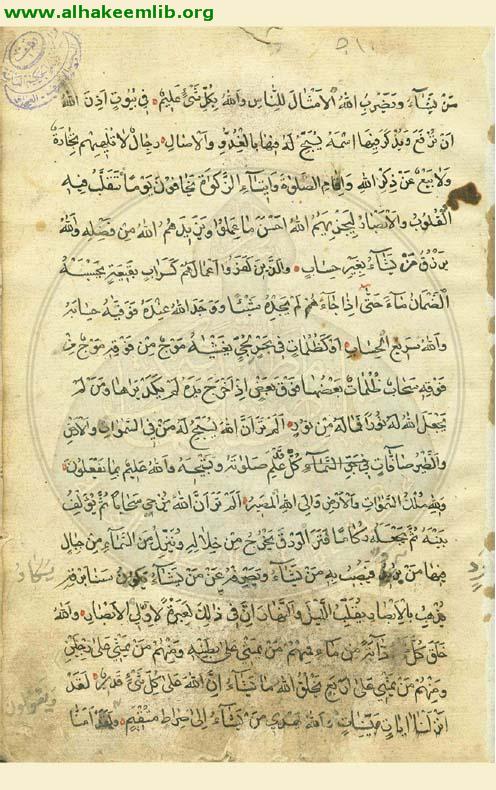 www.alhakeemlib.org
مَنْ يَشَاءُ وَيَضْرِبُ اللهُ الاَمْثَالَ لِلنَّاسِ وَاللهُ بِكُلِّ شَئٍ عَلِيمٌ فِي بُيُوتٍ اَذِنَ اللهُ
اَنْ تُرْفَعَ وَيُذْكَرَ فِيهَا اسْمُهُ يُسَبِّحُ لَهُ فِيهَا بِالْغُدُوِّ وَالآصَالِ رِجَالٌ لَا تُلْهِيهِمْ تِجَارَةٌ
وَلَا بَيْعٌ عَنْ ذِكْرِ اللهِ وَاِقَامِ الصَّلوٰةِ وَاِيتَاءِ الزَّكوٰةِ يَخَافُونَ يَوْمًا تَتَقَلَّبُ فِيهِ
الْقُلُوبُ وَالاَبْصَارُ لِيَجْزِيَهُمُ اللهُ اَحْسَنَ مَا عَمِلُوا وَيَزِيدَهُمُ اللهُ مِنْ فَضْلِهِ وَاللهُ
يَرْزُقُ مَنْ يَشَاءُ بِغَيْرِ حِسَابٍ وَالَّذِينَ كَفَرُوا اَعْمَالُهُمْ كَسَرَابٍ بِقِيعَةٍ يَحْسَبُهُ
الظَّمْاٰنُ مَاءً حَتّٰى اِذَا جَاءَهُ لَمْ يَجِدْهُ شَيْئًا وَوَجَدَ اللهَ عِنْدَهُ فَوَفّٰيهُ حِسَابَهُ
وَاللهُ سَرِيعُ الْحِسَابِ اَوْ كَظُلُمَاتٍ فِي بَحْرٍ لُجِّيٍّ يَغْشٰيهُ مَوْجٌ مِنْ فَوْقِهِ مَوْجٌ مِنْ
فَوْقِهِ سَحَابٌ ظُلُمَاتٌ بَعْضُهَا فَوْقَ بَعْضٍ اِذَا اَخْرَجَ يَدَهُ لَمْ يَكَدْ يَرَاهَا وَمَنْ لَمْ
يَجْعَلِ اللهُ لَهُ نُورًا فَمَا لَهُ مِنْ نُورٍ اَلَمْ تَرَ اَنَّ اللهَ يُسَبِّحُ لَهُ مَنْ فِي السَّمٰوَاتِ وَالاَرْضِ
وَالطَّيْرُ صَافَّاتٍ فِي جَوِّ السَّمَاءِ كُلٌّ قَدْ عَلِمَ صَلوٰتَهُ وَتَسْبِيحَهُ وَاللهُ عَلِيمٌ بِمَا يَفْعَلُونَ
وَلِلّٰهِ مُلْكُ السَّمٰوَاتِ وَالاَرْضِ وَاِلَى اللهِ الْمَصِيرُ اَلَمْ تَرَ اَنَّ اللهَ يُزْجِي سَحَابًا ثُمَّ يُؤَلِّفُ
بَيْنَهُ ثُمَّ يَجْعَلُهُ رُكَامًا فَتَرَى الْوَدْقَ يَخْرُجُ مِنْ خِلَالِهِ وَيُنَزِّلُ مِنَ السَّمَاءِ مِنْ جِبَالٍ
فِيهَا مِنْ بَرَدٍ فَيُصِيبُ بِهِ مَنْ يَشَاءُ وَيَصْرِفُهُ عَنْ مَنْ يَشَاءُ يَكَادُ سَنَا بَرْقِهِ
يَذْهَبُ بِالاَبْصَارِ يُقَلِّبُ اللهُ اللَّيْلَ وَالنَّهَارَ اِنَّ فِي ذٰلِكَ لَعِبْرَةً لِاُولِي الاَبْصَارِ وَاللهُ
خَلَقَ كُلَّ دَابَّةٍ مِنْ مَاءٍ فَمِنْهُمْ مَنْ يَمْشِي عَلٰى بَطْنِهِ وَمِنْهُمْ مَنْ يَمْشِي عَلٰى رِجْلَيْنِ
وَمِنْهُمْ مَنْ يَمْشِي عَلٰى اَرْبَعٍ يَخْلُقُ اللهُ مَا يَشَاءُ اِنَّ اللهَ عَلٰى كُلِّ شَئٍ قَدِيرٌ لَقَدْ
اَنْزَلْنَا اٰيَاتٍ مُبَيِّنَاتٍ وَاللهُ يَهْدِي مَنْ يَشَاءُ اِلٰى صِرَاطٍ مُسْتَقِيمٍ
ويقولون